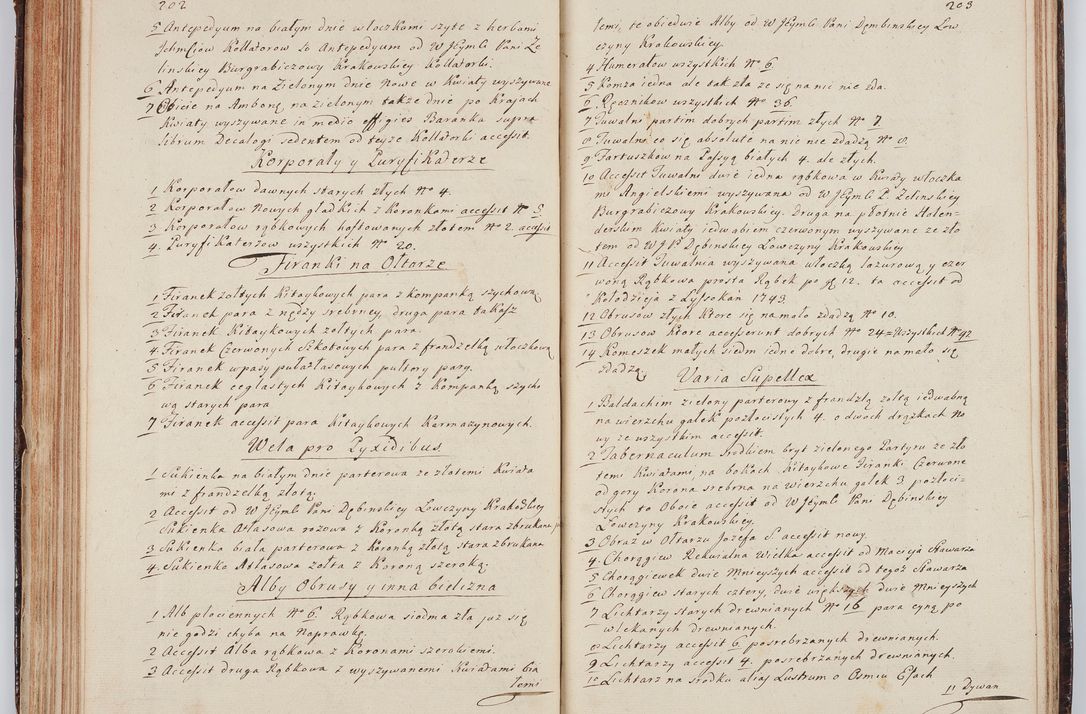 202
5 Antepedyum na białym dnie włoczkami szyte z herbami
Jchmściow Kollatorow to Antepedyum od W Jeymći Pani Ze
linskiey Burgrabiczowy Krakowskiey Kollatorki.
6 Antepedyum na Zielonym dnie Nowe w Kwiaty wyszywane
7 Obicie na Ambonę na zielonym także dnie po Krajach
Kwiaty wyszywane in medio effigies Baranka supra
librum Decalogi sedentem od teyże Kollatorki accessit.
Korporały y Puryfikaterze
1 Korporałow dawnych starych złych No 4.
2 Korporałow Nowych gładkich z Koronkami accessit No 5
3 Korporałow rąbkowych haftowanych złotem No 2. accessit
4. Puryfikaterzow wszystkich No 20.
Firanki na Ołtarze
1 Firanek żołtych Kitaykowych para z kompanką szychową
2 Firanek para z nędzy srebrney, druga para takasz
3 Firanek Kitaykowych żołtych para.
4. Firanek Czerwonych Szkotowych para z frandzelką włoczkową
5 Firanek w pasy pułatłasowych pułtory pary.
6 Firanek ceglastych Kitaykowych z Kompanką szycho
wą starych para
7 Firanek accessit para Kitaykowych Karmazynowych.
Wela pro Pyxidibus
1 Sukienka na białym dnie parterowa ze złatemi Kwiata
mi z frandzelką złotą.
2 Accessit od W Jeymći Pani Dębinskiey Łowczyny Krakoskiey
Sukienka Atłasowa rożowa z Koronką złotą stara zbrukana
3 Sukienka biała parterowa z Koronką złotą stara zbrukana
4. Sukienka Atłasowa żołta z Koroną szeroką.
Alby Obrusy y inna bielizna
1 Alb płociennych No 6. Rąbkowa siodma zła już się
nie godzi chyba na Naprawkę.
2 Accessit Alba rąbkowa z Koronami szerokiemi.
3 Accessit druga Rąbkowa z wyszywanemi Kwiadami bia
łemi
203
łemi, te obiedwie Alby od W Jeymći Pani Dembinskiey Łow
czyny Krakowskiey.
4 Humerałow wszystkich No 6.
5 Komża iedna ale tak zła że się na nic nie zda.
6. Ręcznikow wszystkich No 36.
7 Tuwalni partim dobrych partim złych No 7
8 Tuwalni co się absolute na nic nie zdadzą No 9.
9 Fartuszkow na Passyą białych 4. ale złych.
10 Accessit Tuwalni dwie iedna rąbkowa w Kwiaty włoczka
mi Angielskiemi wyszywana od W Jeymći P. Zelinskiey
Burgrabiczowy Krakowskiey. Druga na płotnie Holen-
derskim Kwiaty iedwabiem czerwonym wyszywane ze zło
tem od W J P Dębinskiey Łowczyny Krakowskiey
11 Accessit Tuwalnia wyszywana włoczką lazurową y czer
woną Rąbkowa prosta Rąbek po 12. ta accessit od
Kołodzieja z Lyssokan 1743.
12 Obrusow złych ktore się na mało zdadzą No 10.
13 Obrusow ktore accesserunt dobrych No 24 = Wszystkich No 42
14 Komeszek małych siedm iedne dobre, drugie na mało się
zdadzą
Varia Supellex
1 Baldachim zielony parterowy z frandzlą żołtą iedwabną
na wierzchu gałek pozłocistych 4. o dwoch drążkach No
wy ze wszystkim accessit.
2 Tabernaculum srodkiem bryt zielonego Partyru ze zło
temi Kwiatami, na bokach Kitaykowe Firanki Czerwone
od gory Korona srebrna na wierzchu gałek 3 pozłoci-
stych to Oboie accessit od W Jeymći Pani Dębinskiey
Łowczyny Krakowskiey.
3 Obraz w Ołtarzu Jozefa S accessit nowy.
4. Chorągiew Rekwialna Wielka accessit od Macieja Sławarza
5 Chorągiewek dwie Mnieyszych accessit od tegoż Sławarza
6 Chorągiew starych cztery, dwie większych dwie Mnieyszych
7 Lichtarzy starych drewnianych No 16 para cyną po
wlekanych drewnianych.
8 Lichtarzy accessit 6 posrebrzanych drewnianych.
9 Lichtarzy accessit 4. posrebrzanych drewnianych.
10 Lichtarz na srodku alias Lustrum o Osmiu Essach
11 Dywan